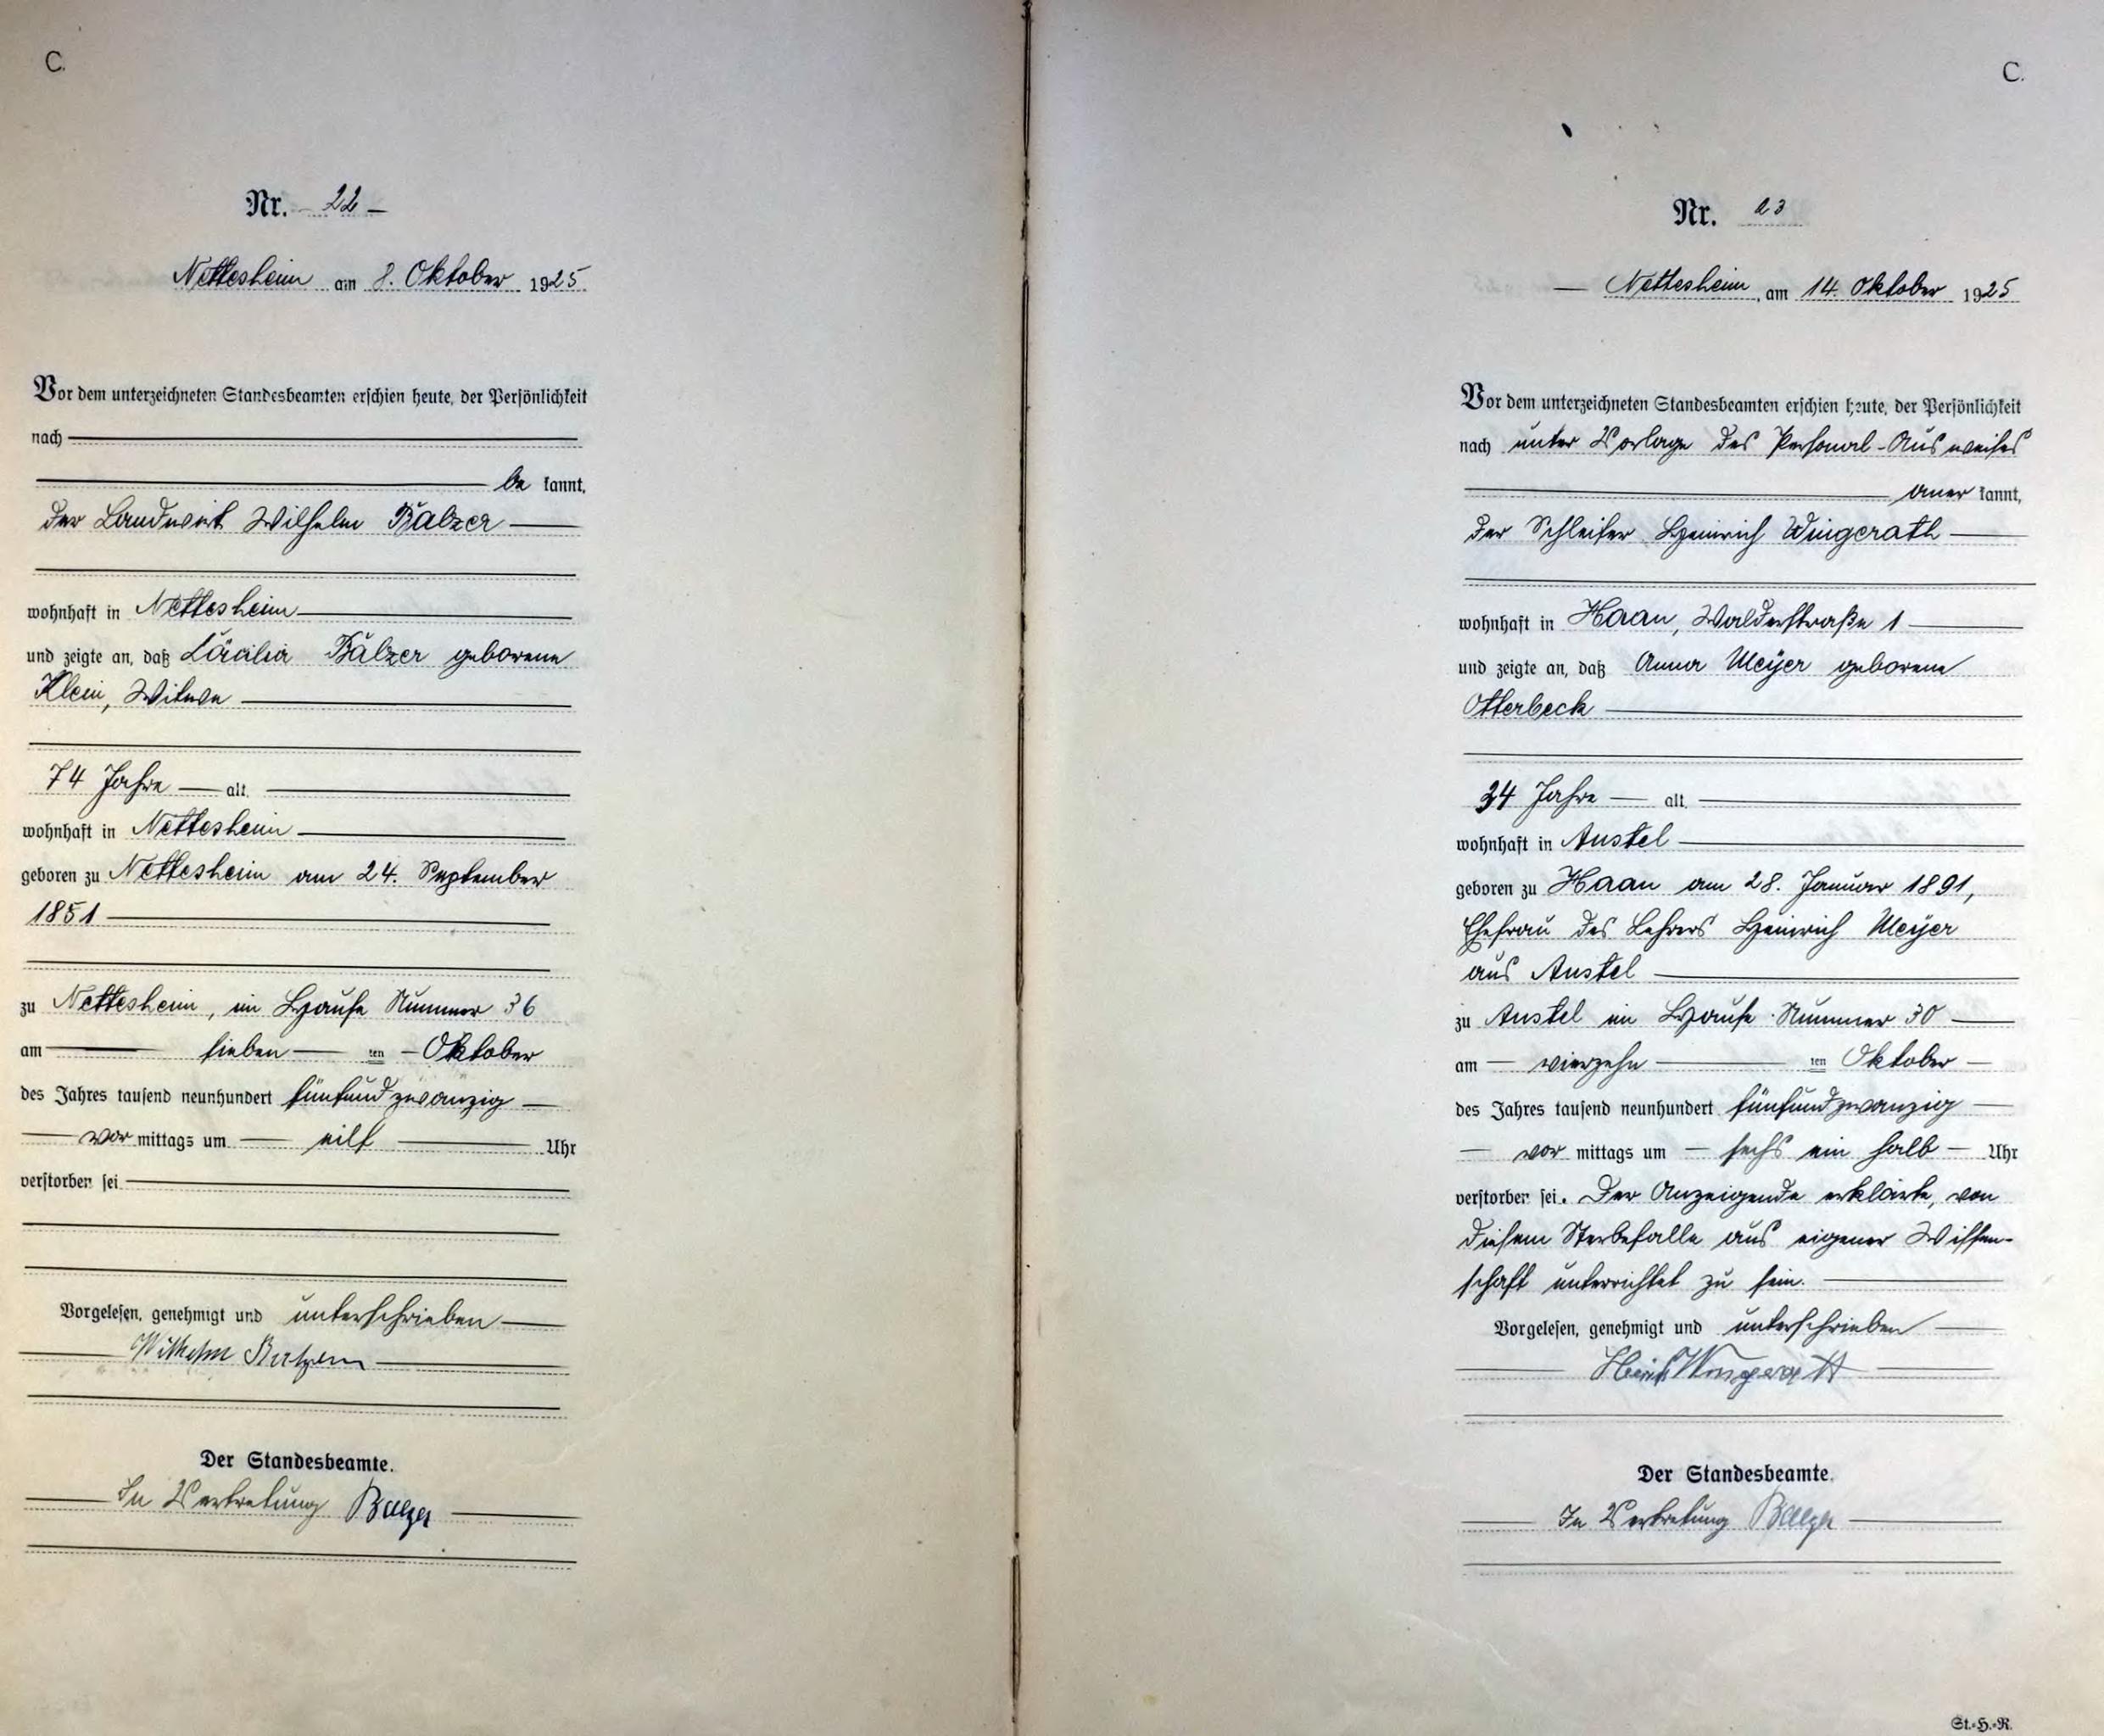 C.
Nr. 22
Nettesheim am 8. Oktober 1925
Vor dem unterzeichneten Standesbeamten erschien heute, der Persönlichkeit
nach
be kannt,
der Landwirt Wilhelm Balzer
wohnhaft in Nettesheim
und zeigte an, daß Cäcilia Balzer geborene
Klein, Witwe
74 Jahre alt,
wohnhaft in Nettesheim
geboren zu Nettesheim am 24. September
1851
zu Nettesheim, im Hause Nummer 36
am sieben ten Oktober
des Jahres tausend neunhundert fünfundzwanzig
vor mittags um eilf Uhr
verstorben sei.
Vorgelesen, genehmigt und unterschrieben
Wilhelm Balzer
Der Standesbeamte.
In Vertretung Balzer
C.
Nr. 23
Nettesheim, am 14. Oktober 1925
Vor dem unterzeichneten Standesbeamten erschien heute, der Persönlichkeit
nach unter Vorlage des Personal-Ausweises
aner kannt,
der Schleifer Heinrich Wingerath
wohnhaft in Haan, Walderstraße 1
und zeigte an, daß Anna Meyer geborene
Otterbeck
34 Jahre alt,
wohnhaft in Anstel
geboren zu Haan am 28. Januar 1891,
Ehefrau des Lehrers Heinrich Meyer
aus Anstel
zu Anstel im Hause Nummer 30
am vierzehn ten Oktober
des Jahres tausend neunhundert fünfundzwanzig
vor mittags um sechs ein halb Uhr
verstorben sei. Der Anzeigende erklärte, von
diesem Sterbefalle aus eigener Wissen-
schaft unterrichtet zu sein.
Vorgelesen, genehmigt und unterschrieben
Heinr Wingerath
Der Standesbeamte.
In Vertretung Balzer
St.-H.-R.